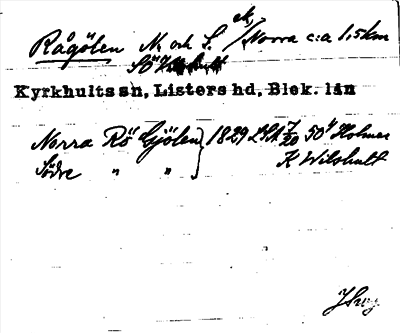 Rågölen N. och S. ek, / Norra c:a 1,5 km
SÖ
Kyrkhults sn, Listers hd, Blek. län
Norra Rö Gjölen } 1829 LSA 7/20 50 Holmar
Södre " " } K Wilshult